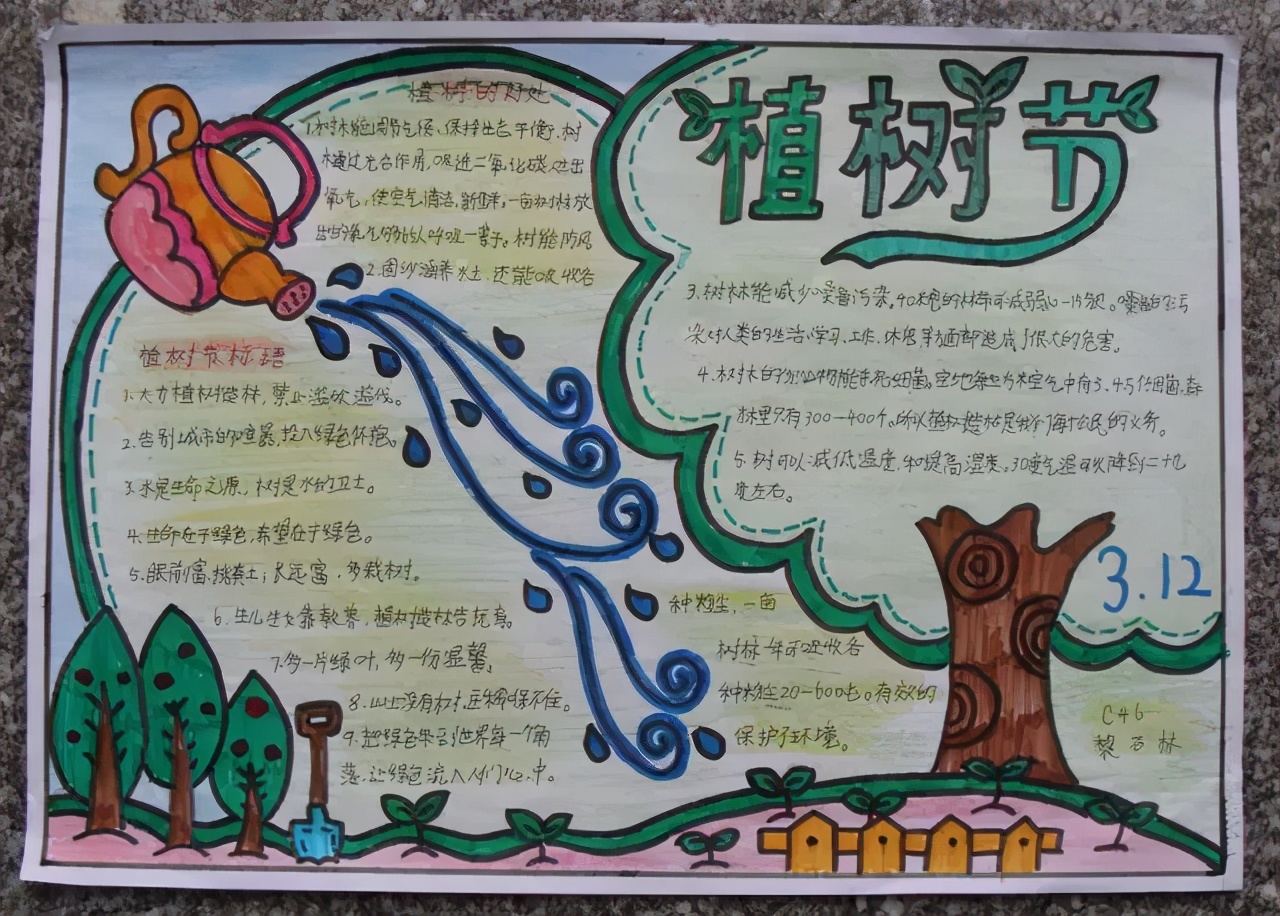 植树节
植树的好处
1.树林能调节气候、保持生态平衡.树
通过光合作用,吸进二氧化碳,放出
氧气,使空气清洁、新鲜;一亩树林放
出的氧气够65人呼吸一辈子。树能防风
2.固沙涵养水土.还能吸收各
3.树林能减少噪音污染。40米宽的林带可减弱 噪音的污
染对人类的生活、学习、工作、休息等方面都造成了很大的危害。
4.树木的分泌物能杀死细菌。空地 空气中有3.4万个细菌.森
林里只有300—400个。所以植树造林是我们每个公民的义务。
5.树可以减低温度,和提高湿度。30度气温可以降到二十几
度左右。
植树节标语
1.大力植树造林,禁止滥砍滥伐。
2.告别城市的喧嚣,投入绿色怀抱。
3.水是生命之源,树是水的卫士。
4.生命在于绿色,希望在于绿色。
5.眼前富,挑粪土;长远富,多栽树。
6.生儿生女靠教养,植树造林靠抚育。
7.多一片绿叶,多一份温馨。
8.山上没有树,庄稼保不住。
9.把绿色带到世界每一个角
落,让绿色流入人们心中。
种粉尘,一亩
树林一年可吸收各
种粉尘20—600吨。有效的
保护了环境。
3.12
C46
黎 林